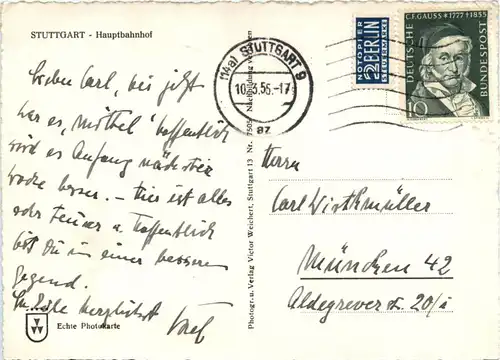 STUTTGART - Hauptbahnhof
Lieber Carl, bis jetzt
war es „möthel" hoffentlich
wird es Anfang nächster
Woche besser. – Hier ist alles
oder Teurer u. hoffentlich
bist Du in einer besseren
Gegend.
In Eile herzlichst
Echte Photokarte
Photogr. u. Verlag Victor Weichert, Stuttgart 13 Nr. 7505 Nachbildung verboten
(14a) STUTTGART 9
10.3.56.-17
az
NOTOPFER
2 BERLIN
STEUERMARKE
C.F.GAUSS * 1777 † 1855
DEUTSCHE
BUNDESPOST
10
Herrn
Carl Wirthmüller
München 42
Aldegrever 20/i